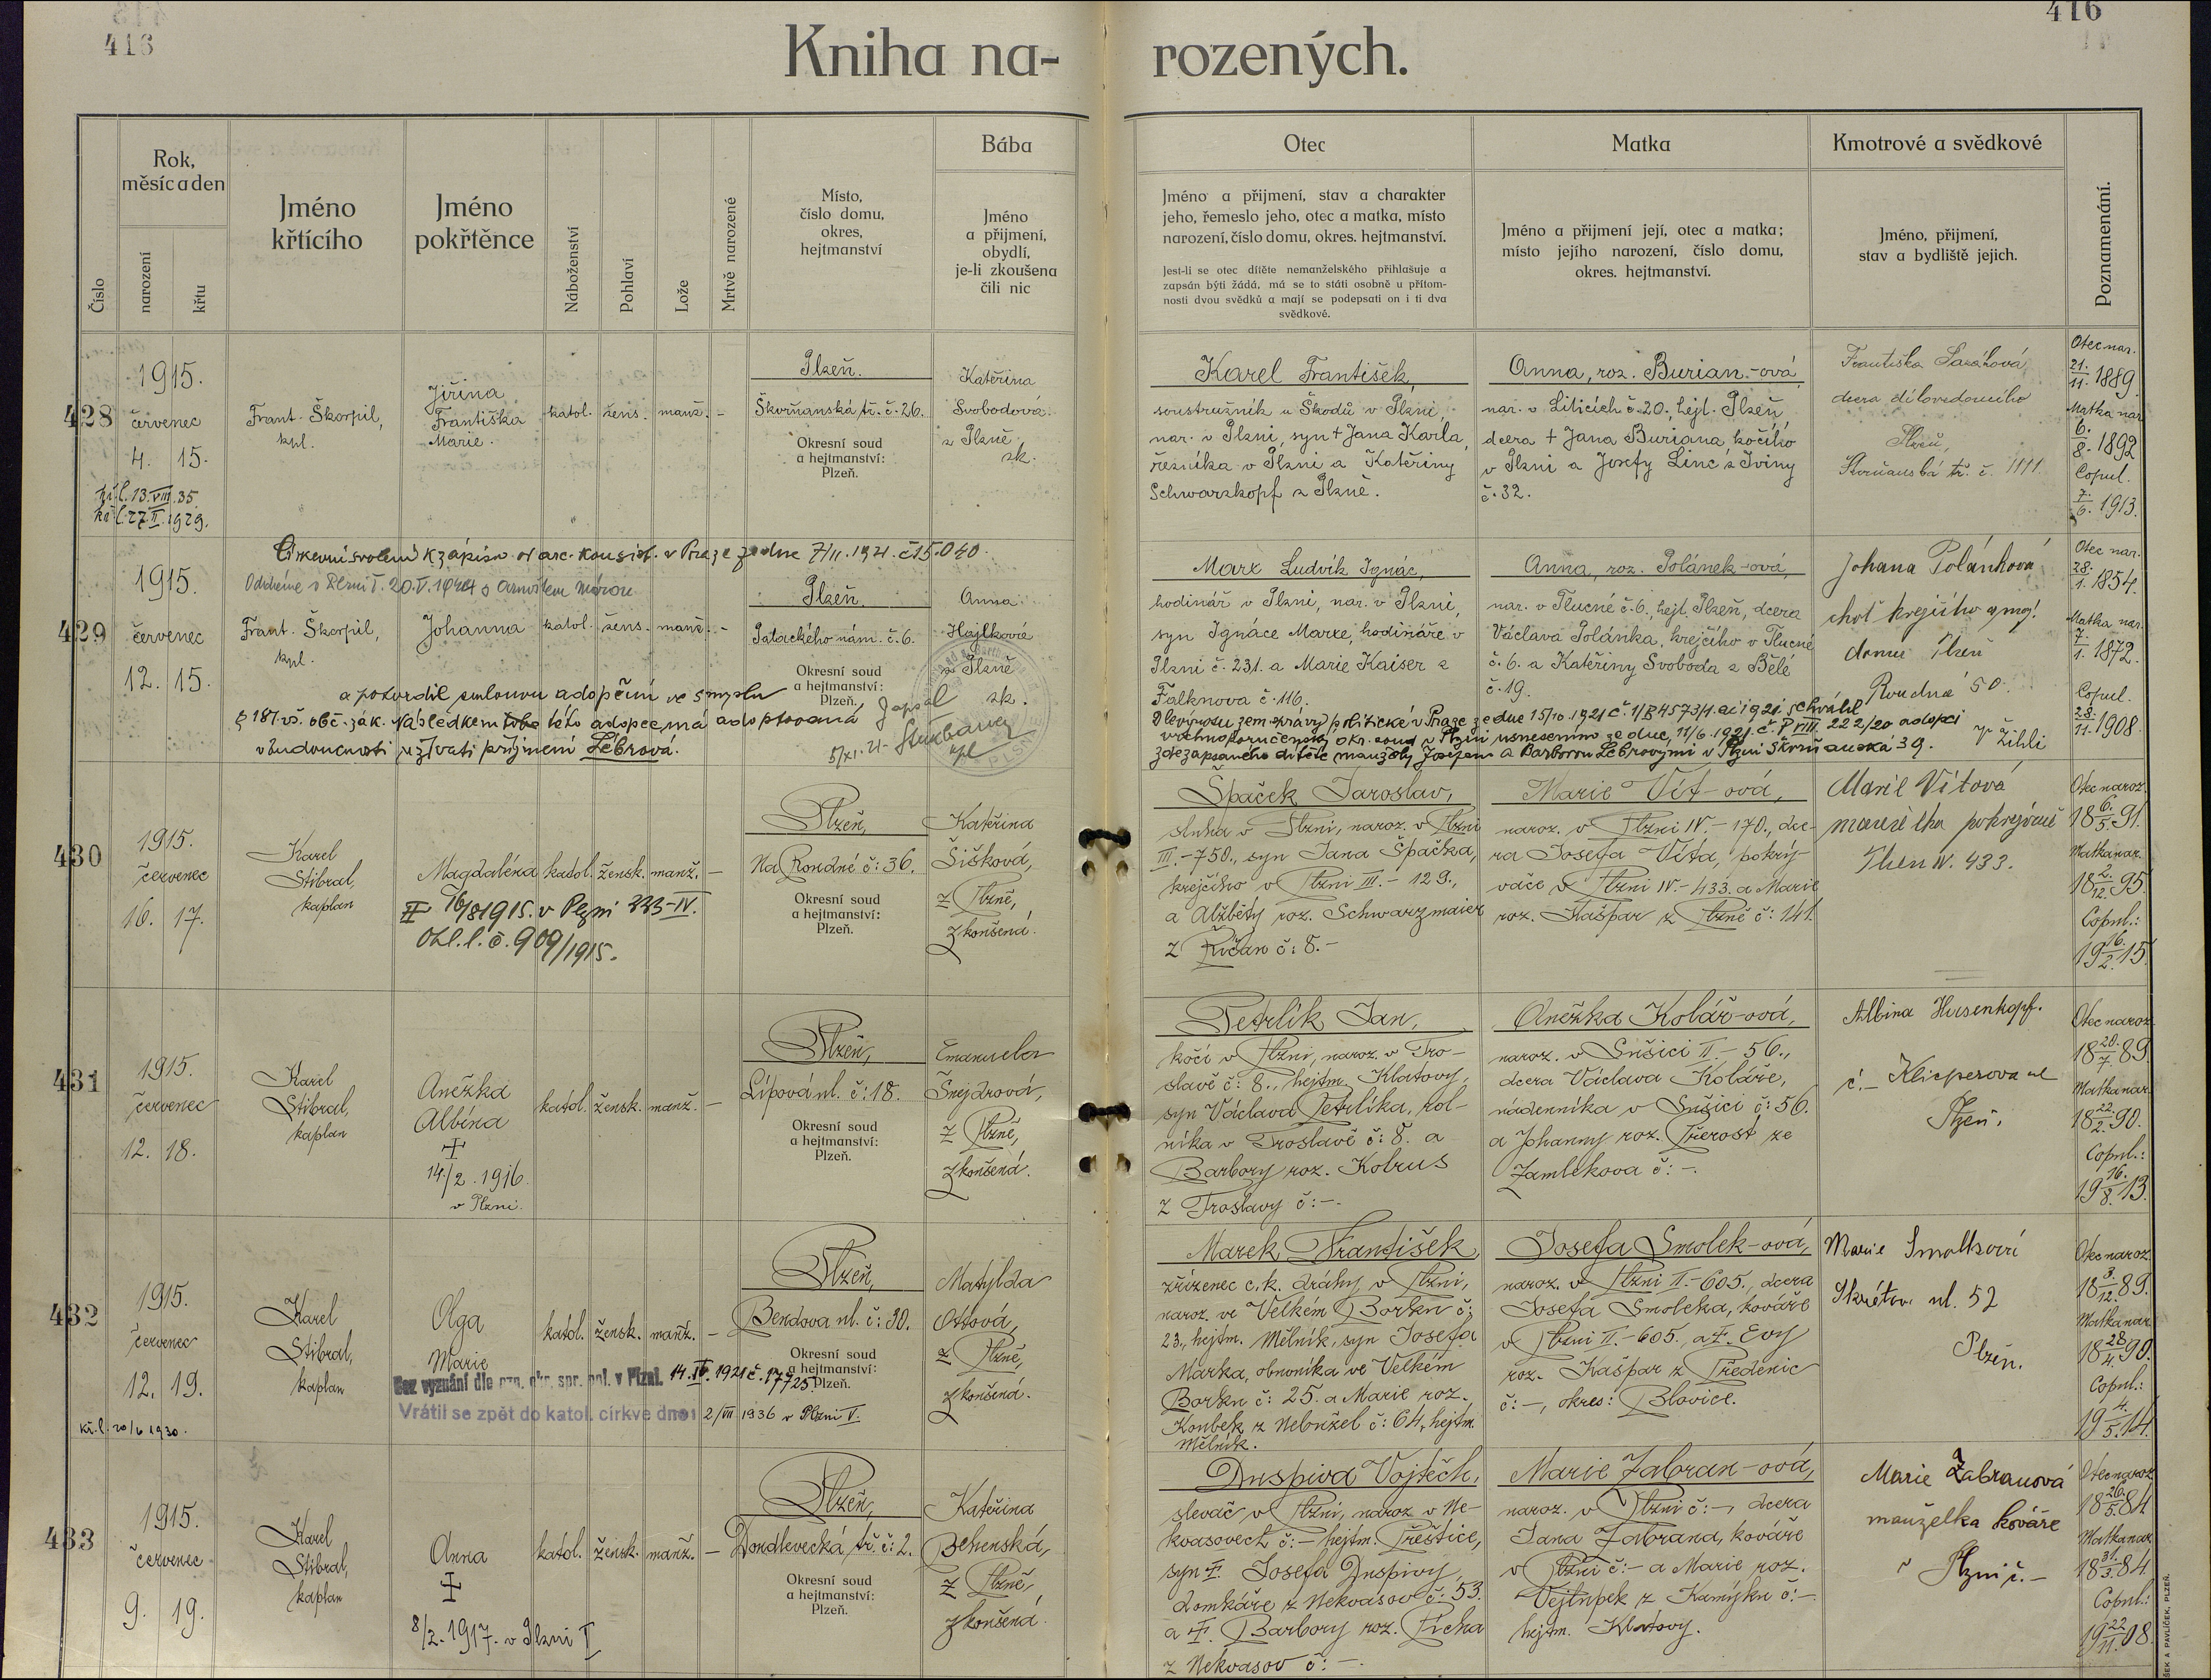 416
416
Kniha na-rozených.
Číslo
Rok, měsíc a den
narození
křtu
Jméno křtícího
Jméno pokřtěnce
Náboženství
Pohlaví
Lože
Mrtvě narozené
Místo,
číslo domu,
okres,
hejtmanství
Bába
Jméno
a přijmení,
obydlí,
je-li zkoušena
čili nic
Otec
Jméno a přijmení, stav a charakter
jeho, řemeslo jeho, otec a matka, místo
narození, číslo domu, okres. hejtmanství.
Jest-li se otec dítěte nemanželského přihlašuje a
zapsán býti žádá, má se to státi osobně u přítom-
nosti dvou svědků a mají se podepsati on i ti dva
svědkové.
Matka
Jméno a přijmení její, otec a matka;
místo jejího narození, číslo domu,
okres. hejtmanství.
Kmotrové a svědkové
Jméno, přijmení,
stav a bydliště jejich.
Poznamenání.
428
1915.
červenec
4. 15.
kř. l. 13.VIII.35.
kř. l. 27.II.1929.
Frant. Škorpil,
kpl.
Jiřina
Františka
Marie.
katol. žens. manž. -
Plzeň.
Škvrňanská tř. č. 26.
Okresní soud
a hejtmanství:
Plzeň.
Kateřina
Svobodová
z Plzně
zk.
Karel František,
soustružník u Škodů v Plzni,
nar. v Plzni, syn † Jana Karla,
řezníka v Plzni a Kateřiny
Schwarzkopf z Plzně.
Anna, roz. Burian-ová
nar. v Liticích č. 20. hejt. Plzeň,
dcera † Jana Buriana kočího
v Plzni a Josefy Linc z Iviny
č. 32.
Františka
dcera dílovedoucího
Plzeň,
tř. č. 1111
Otec nar.
21./11. 1889.
Matka nar.
6./8. 1892
Copul.
7./6. 1913.
Církevní svolení k zápisu od arc. konsist. v Praze ze dne 7/11. 1921. č 15.040.
429
1915.
červenec
12. 15.
Oddána v Plzni I. 20.V.1944 s
Frant. Škorpil,
kpl.
Johanna
katol. žens. manž. -
Plzeň.
Palackého nám. č. 6.
Okresní soud
a hejtmanství:
Plzeň.
Anna
Hajlková
z Plzně
zk.
Marx Ludvík Ignác,
hodinář v Plzni, nar. v Plzni,
syn Ignáce Marxe, hodináře v
Plzni č. 231. a Marie Kaiser z
Falknova č. 116.
Anna, roz. Polánek-ová,
nar. v Tlucné č. 6., hejt. Plzeň, dcera
Václava Polánka, krejčího v Tlucné
č. 6. a Kateřiny Svoboda z Bělé
č. 19.
Johana Polánková
choť krejčího a maj.
domu Plzeň
Roudná 50.
Otec nar.
28./1. 1854.
Matka nar.
7./1. 1872.
Copul.
28./11. 1908.
Dle výnosu zem. správy politické v Praze ze dne 15/10. 1921 č. 1/B 4573/1 ai 1921 schválil
vrchnoporučenský okr. soud v Plzni usnesením ze dne 11/6. 1921. č. P VIII 222/20 adopci
zde zapsaného dítěte manžely Josefem a Barborou Lébrovými v Plzni Škvrňanská 39.
a potvrdil smlouvu adopční ve smyslu
§ 187. vš. obč. zák. Následkem této adopce, má adoptovaná
v budoucnosti užívati příjmení Lébrová.
Zapsal
5/XI. 21.
v Žihli
430
1915.
červenec
16. 17.
Karel
Stibral,
kaplan
Magdaléna
katol. žensk. manž. -
† 16/8 1915. v Plzni 223-IV.
Ohl. l. č. 909/1915.
Plzeň,
Na Roudné č: 36.
Okresní soud
a hejtmanství:
Plzeň.
Kateřina
Šišková,
z Plzně,
zkoušená.
Špaček Jaroslav,
sluha v Plzni, naroz. v Plzni
III.-750., syn Jana Špačka,
krejčího v Plzni III.-129.,
a Alžběty roz. Schwarzmaier
z Říčan č: 8.-
Marie Vít-ová,
naroz. v Plzni IV.-170., dce-
ra Josefa Víta, pokrý-
vače v Plzni IV.-433. a Marie
roz. Kašpar z Plzně č: 141.
Marie Vítová
manželka pokrývače
Plzeň IV. 433.
Otec naroz.
18 6./5. 91.
Matka nar.
18 2./12. 95.
Copul.:
19 16./2. 15.
431
1915.
červenec
12. 18.
Karel
Stibral,
kaplan
Anežka
Albína
†
14./2. 1916.
v Plzni.
katol. žensk. manž. -
Plzeň,
Lípová ul. č: 18.
Okresní soud
a hejtmanství:
Plzeň.
Emanuela
Šnejdrová,
z Plzně,
zkoušená.
Petrlík Jan,
kočí v Plzni, naroz. v Tro-
slavě č: 8., hejtm. Klatovy,
syn Václava Petrlíka, rol-
níka v Troslavě č: 8. a
Barbory roz. Kobrus
z Troslavy č: -.
Anežka Kolář-ová,
naroz. v Sušici II.-56.,
dcera Václava Koláře,
nádenníka v Sušici č: 56.
a Johanny roz. Přerost ze
Zamlekova č: -.
Albina Husenkopf.
č.- Klicperova ul
Plzeň.
Otec naroz.
18 20./7. 89.
Matka nar.
18 22./2. 90.
Copul.:
19 16./8. 13.
432
1915.
červenec
12. 19.
kř. l. 20/6 1930.
Karel
Stibral,
kaplan
Olga
Marie
katol. žensk. manž. -
Bez vyznání dle ozn. okr. spr. pol. v Plzni. 14.IV. 1921 č. 17725
Vrátil se zpět do katol. církve dne: 2/VII 1936 v Plzni V.
Plzeň,
Bendova ul. č: 30.
Okresní soud
a hejtmanství:
Plzeň.
Matylda
Ottová,
z Plzně,
zkoušená.
Marek František,
zřízenec c.k. dráhy v Plzni,
naroz. ve Velkém Borku č:
23., hejtm. Mělník, syn Josefa
Marka, obuvníka ve Velkém
Borku č: 25. a Marie roz.
Koubek z Nebužel č: 64, hejtm.
Mělník.
Josefa Smolek-ová,
naroz. v Plzni II.-605., dcera
Josefa Smoleka, kováře
v Plzni II.-605., a †. Evy
roz. Kašpar z Předenic
č: -, okres: Blovice.
Marie
Skrétova ul. 52
Plzeň.
Otec naroz.
18 3./12. 89.
Matka nar.
18 28./4. 90.
Copul.:
19 4./5. 14.
433
1915.
červenec
9. 19.
Karel
Stibral,
kaplan
Anna
†
8/2. 1917. v Plzni I
katol. žensk. manž. -
Plzeň,
Doudlevecká tř. č: 2.
Okresní soud
a hejtmanství:
Plzeň.
Kateřina
Behenská,
z Plzně,
zkoušená.
Duspiva Vojtěch,
slevač v Plzni, naroz. v Ne-
kvasovech č: - hejtm. Přeštice,
syn †. Josefa Duspivy,
domkáře z Nekvasov č: 53.
a †. Barbory roz. Tícha
z Nekvasov č: -.
Marie Zabran-ová,
naroz. v Plzni č: -, dcera
Jana Zabrana, kováře
v Plzni č: - a Marie roz.
Vejlupek z Kamýku č: -.
hejtm. Klatovy.
Marie Zabranová
manželka kováře
v Plzni č. -
Otec naroz.
18 26./5. 84
Matka nar.
18 31./3. 84
Copul.:
19 22./11. 08.